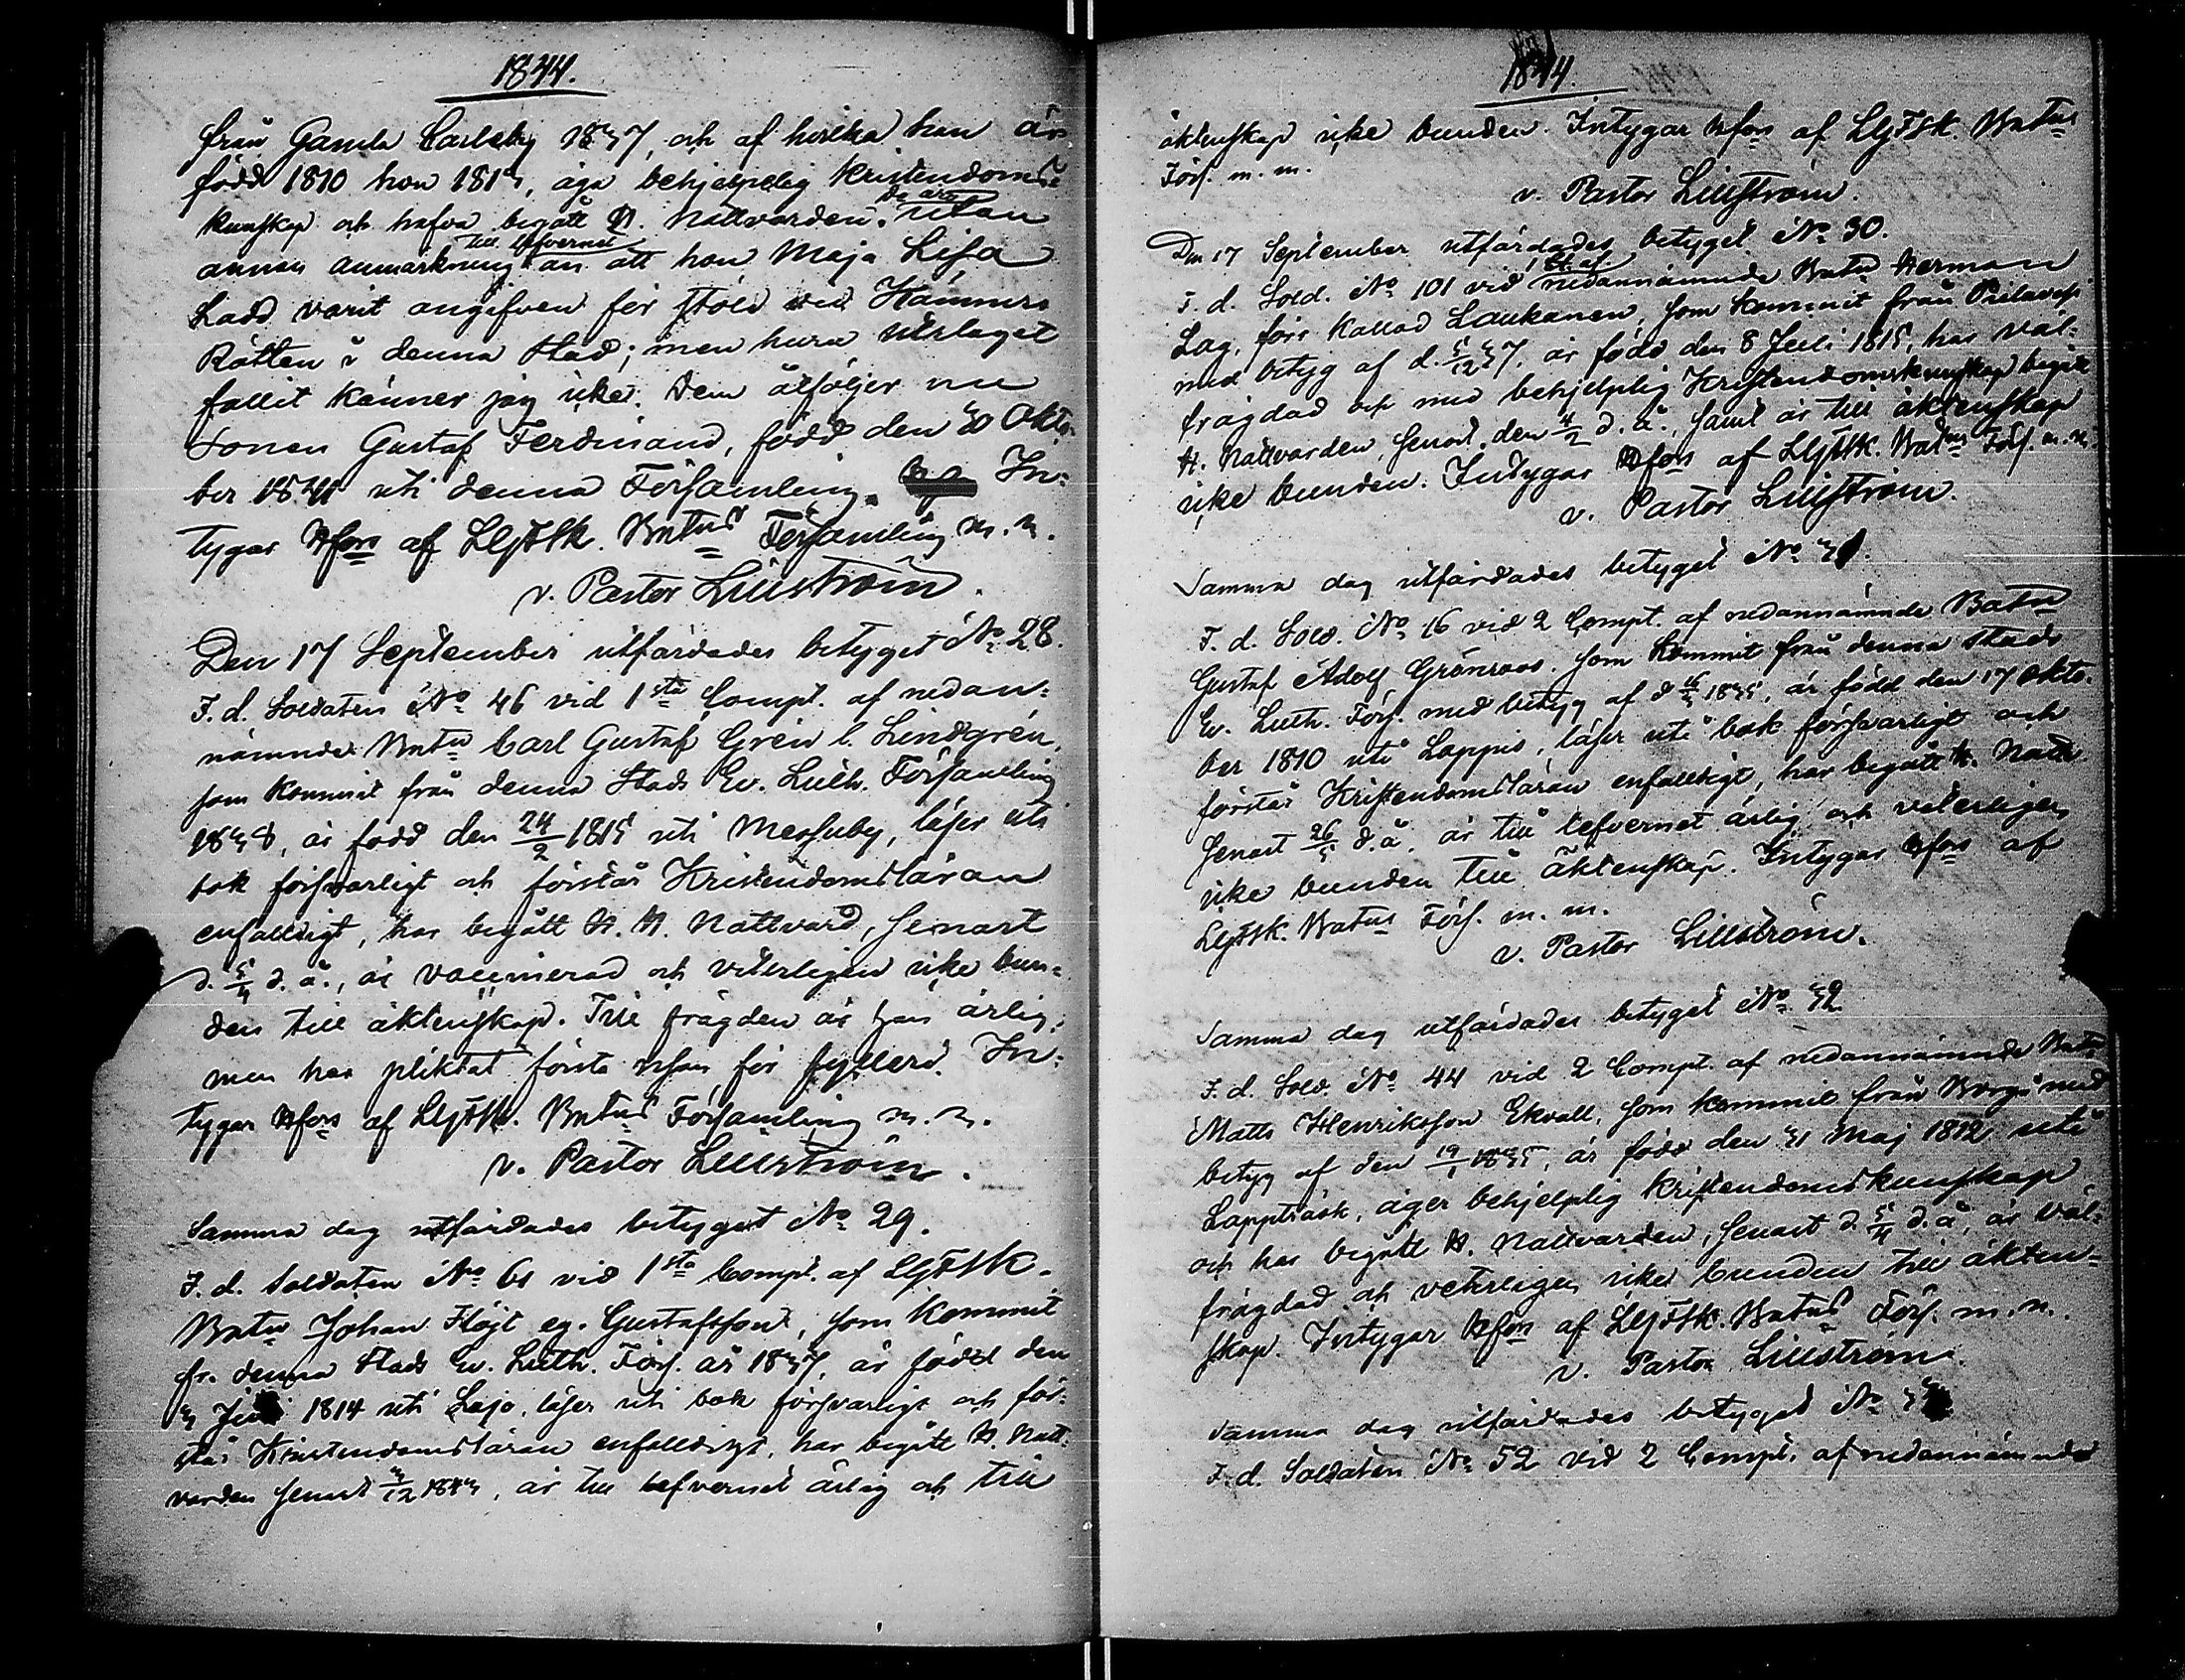 1844.
från Gamla Carleby 1837, och af hvilka han är
född 1810 hon 1813, äga behjelpelig kristendoms-
kunskap och hafva begått H. Nattvarden. De äro utan
annan anmärkning till lefvernet än att hon Maja Lisa
Ladd varit angifven för stöld vid Kämners
Rätten i denna stad; men huru utslaget
fallit känner jag icke. Dem åtföljer nu
Sonen Gustaf Ferdinand, född den 30 Okto-
ber 1841 uti denna Församling. In-
tygar Hfors af LGFSk. Batns Församling m. m.
v. Pastor Lillström.
Den 17 September utfärdades betyget No 28.
F. d. Soldaten No 46 vid 1sta Compt. af nedan-
nämnde Batn Carl Gustaf Grén l. Lindgrén,
som kommit från denna Stads Ev. Luth. Församling
1838, är född den 24/2 1815 uti Messuby, läser uti
bok försvarligt och förstår Kristendomsläran
enfaldigt, har begått H. H. Nattvard, senast
d. 5/4 d. å., är vaccinerad och veterligen icke bun-
den till äktenskap. Till frägden är han ärlig,
men har pliktat första resan för fylleri. In-
tygar Hfors af LGFSk. Batns Församling m. m.
v. Pastor Lillström.
Samma dag utfärdades betyget No 29.
F. d. Soldaten No 61 vid 1sta Compt. af LGFSk.
Batn Johan Flöjt eg. Gustafsson, som kommit
fr. denna Stads Ev. Luth. Förs. år 1837, är född den
3 1814 uti Lojo, läser uti bok försvarligt och för-
står Kristendomsläran enfaldigt, har begått H. Natt-
varden senast 3/12 1843, är till lefvernet ärlig och till
1844.
äktenskap icke bunden. Intygar Hfors af LGFSk. Batns
Förs. m. m.
v. Pastor Lillström.
Den 17 September utfärdades betyget No 30.
F. d. Sold. No 101 vid nedannämnde Batn Herman
Lag, förr kallad Laukanen, som kommit från Pielavesi
med betyg af d. 5/12 37, är född den 8 Juli 1815, har väl-
frägdad och med behjelplig Kristendomskunskap begått
H. Nattvarden, senast den 4/2 d. å., samt är till äktenskap
icke bunden. Intygar Hfors af LGFSk. Batns Förs. m. m.
v. Pastor Lillström.
Samma dag utfärdades betyget No 31.
F. d. Sold. No 16 vid 2 Compt. af nedannämnde Batn
Gustaf Adolf Grönroos, som kommit från denna Stads
Ev. Luth. Förs. med betyg af d 1835, är född den 17 Okto-
ber 1810 uti Lappis, läser uti bok försvarligt och
förstår Kristendomsläran enfaldigt, har begått H. Nattv.
senast 26/5 d. å. är till lefvernet ärlig och veterligen
icke bunden till äktenskap. Intygar Hfors af
LGFSk. Batns Förs. m. m.
v. Pastor Lillström.
Samma dag utfärdades betyget No 32
F. d. Sold. No 44 vid 2 Compt. af nedannämnde Batn
Matts Henriksson Ekvall, som kommit från Borgå med
betyg af den 19/1 1835, är född den 31 Maj 1812 uti
Lappträsk, äger behjelplig Kristendomskunskap
och har begått H. Nattvarden, senast d. 5/4 d. å, är väl-
frägdad och veterligen icke bunden till äkten-
skap. Intygar Hfors af LGFSk. Batns Förs. m. m.
v. Pastor Lillström.
Samma dag utfärdades betyget No 33
F. d. Soldaten No 52 vid 2 Compt. af nedannämnde